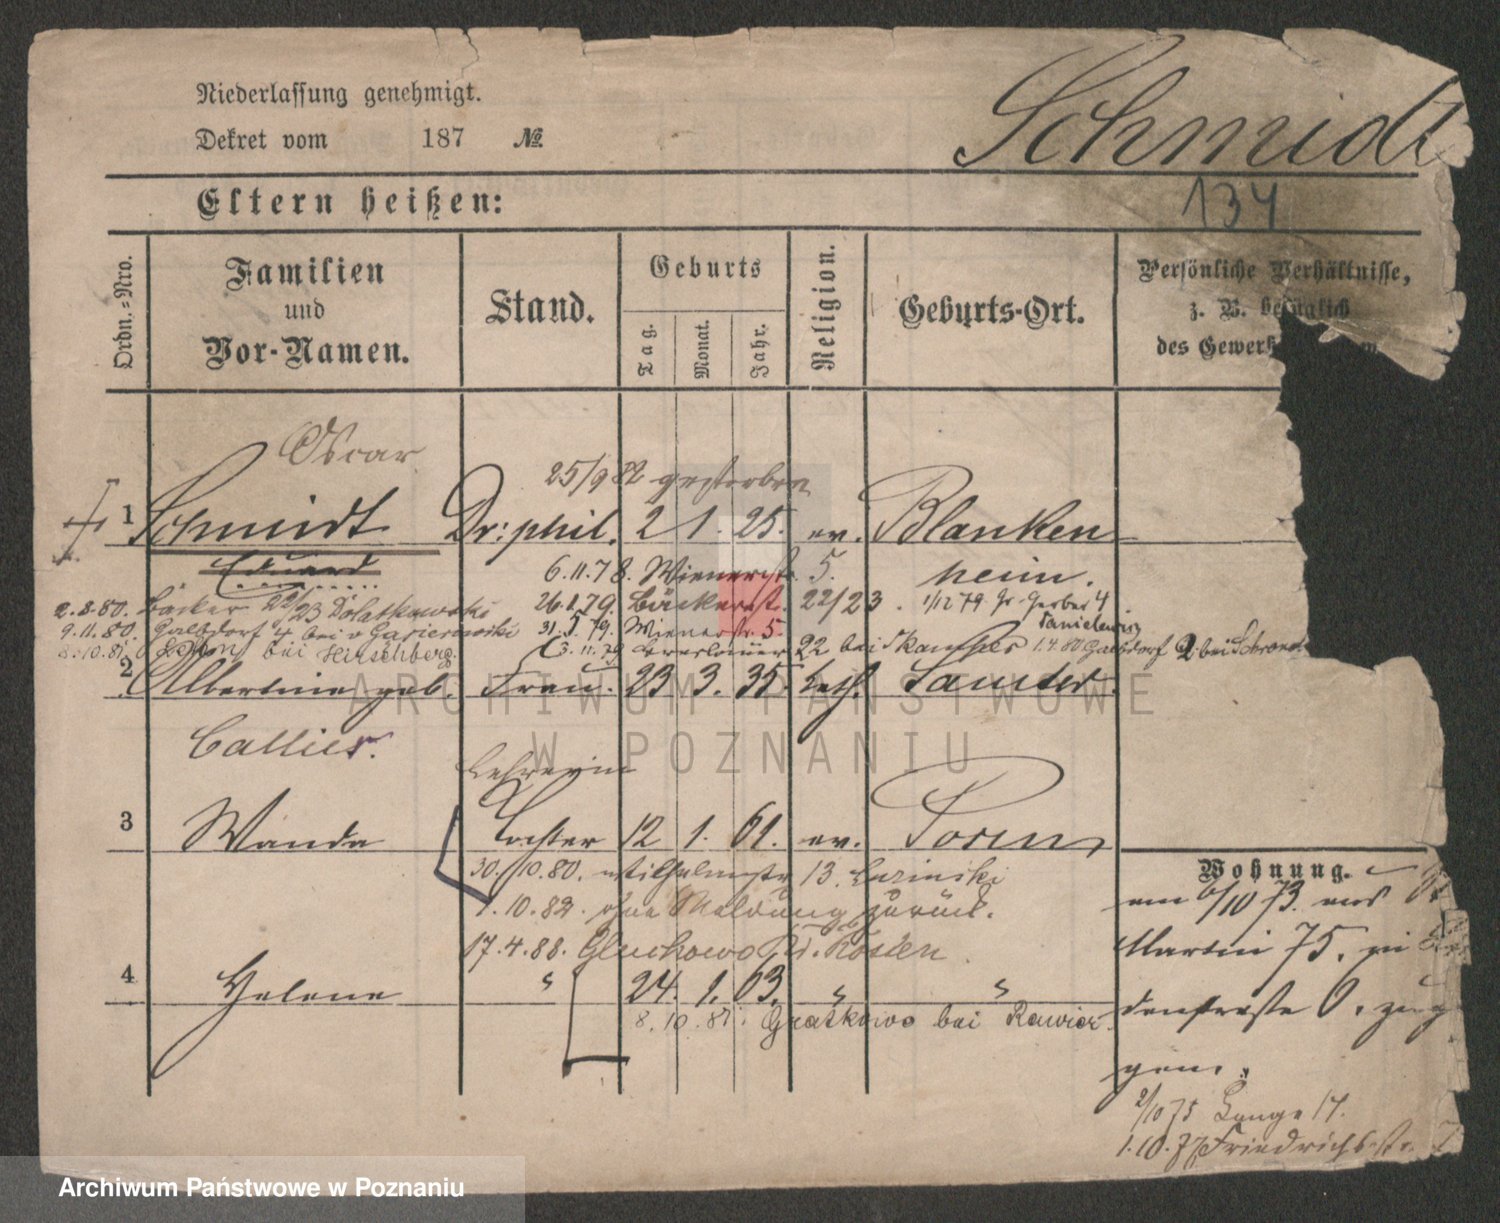 Niederlassung genehmigt.
Dekret vom 187 №
Schmidt
134
Eltern heißen:
Ordn.-Nro.
Familien
und
Vor-Namen.
Stand.
Geburts
Tag.
Monat.
Jahr.
Religion.
Geburts-Ort.
Persönliche Verhältnisse,
z. B. bezüglich
des Gewerb
Oscar
25/9 82 gestorben
1 Schmidt Dr: phil. 2 1. 25. ev. Blanken
Eduard
6.11.78. Wienerstr. 5. heim.
26.1.79. Bäckerst. 22/23. 1/12 79 Gr. Gerber 4
2.8.80. Bäcker 22/23
31.5.79. Wienerstr. 5.
9.11.80. Galldorf 4. bei v Gasierowski
3.11.79 Breslauer 22 bei 1.4.80 2 bei
8.10.81. bei Hirschberg.
2 Albertine geb. Frau. 23 3. 35 kath. Samter.
Callier.
Lehrerin
3 Wanda Tochter 12 1. 61. ev. Posen
30.10.80. Wilhelmstr 13.
1.10.82. ohne Meldung zurück.
17.4.88. Gluchowo Kr. Kosten.
4 Helene " 24. 1. 63. " "
8.10.81. Gratkowo bei Rawicz.
Wohnung.
am 6/10 73. aus
Martin 75. in
0. zug
gen.
2/10 75 Lange 17.
1.10.77 Friedrichsstr.
ARCHIWUM PAŃSTWOWE
W POZNANIU
Archiwum Państwowe w Poznaniu